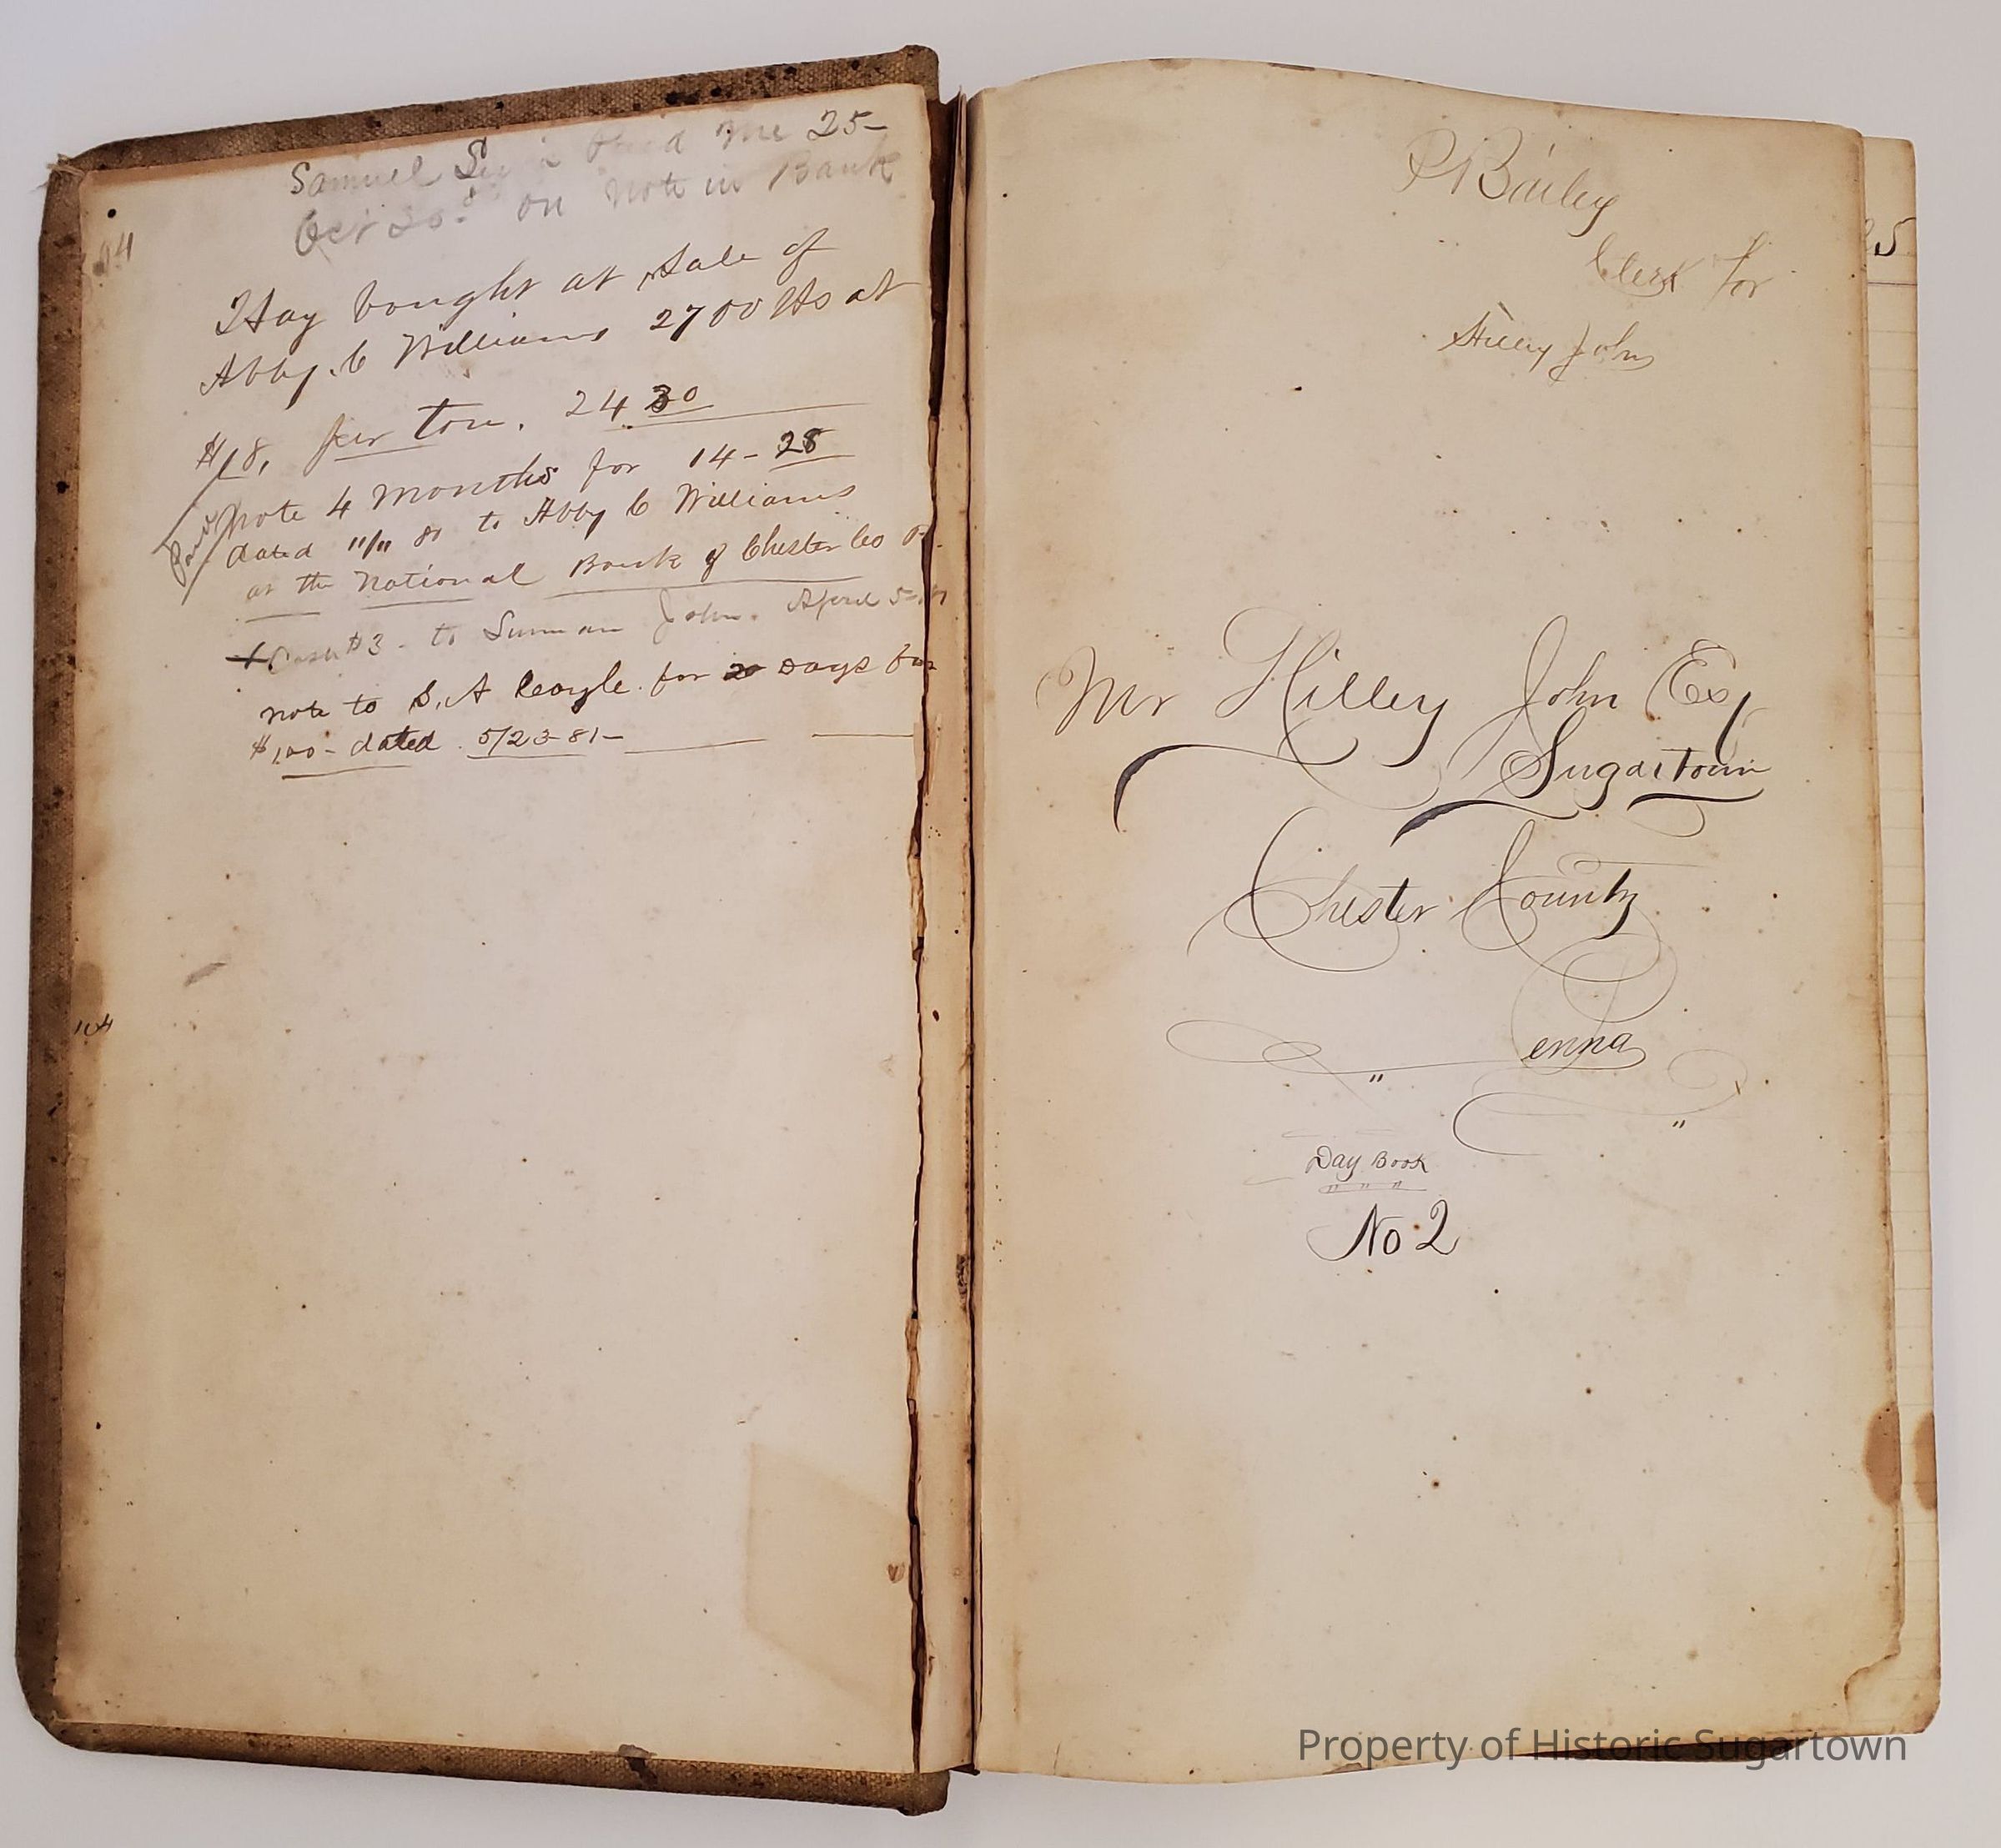 Samuel paid me 25-
Oct on note in Bank
44
Hay bought at Sale of
Abby. C Williams 2700 lbs at
$18, per ton. 24.30
Paid
Note 4 months for 14-28
dated "/" 80 to Abby C Williams
at the National Bank of Chester Co
Cash $3 - to John. April 5
note to S. A for Days for
$100- dated 5/23-81-
104
P Bailey
Clerk for
Hilley John
25
Mr Hilley John Esq
Sugartown
Chester County
Penna
"
"
Day Book
" " "
No 2
Property of Historic Sugartown